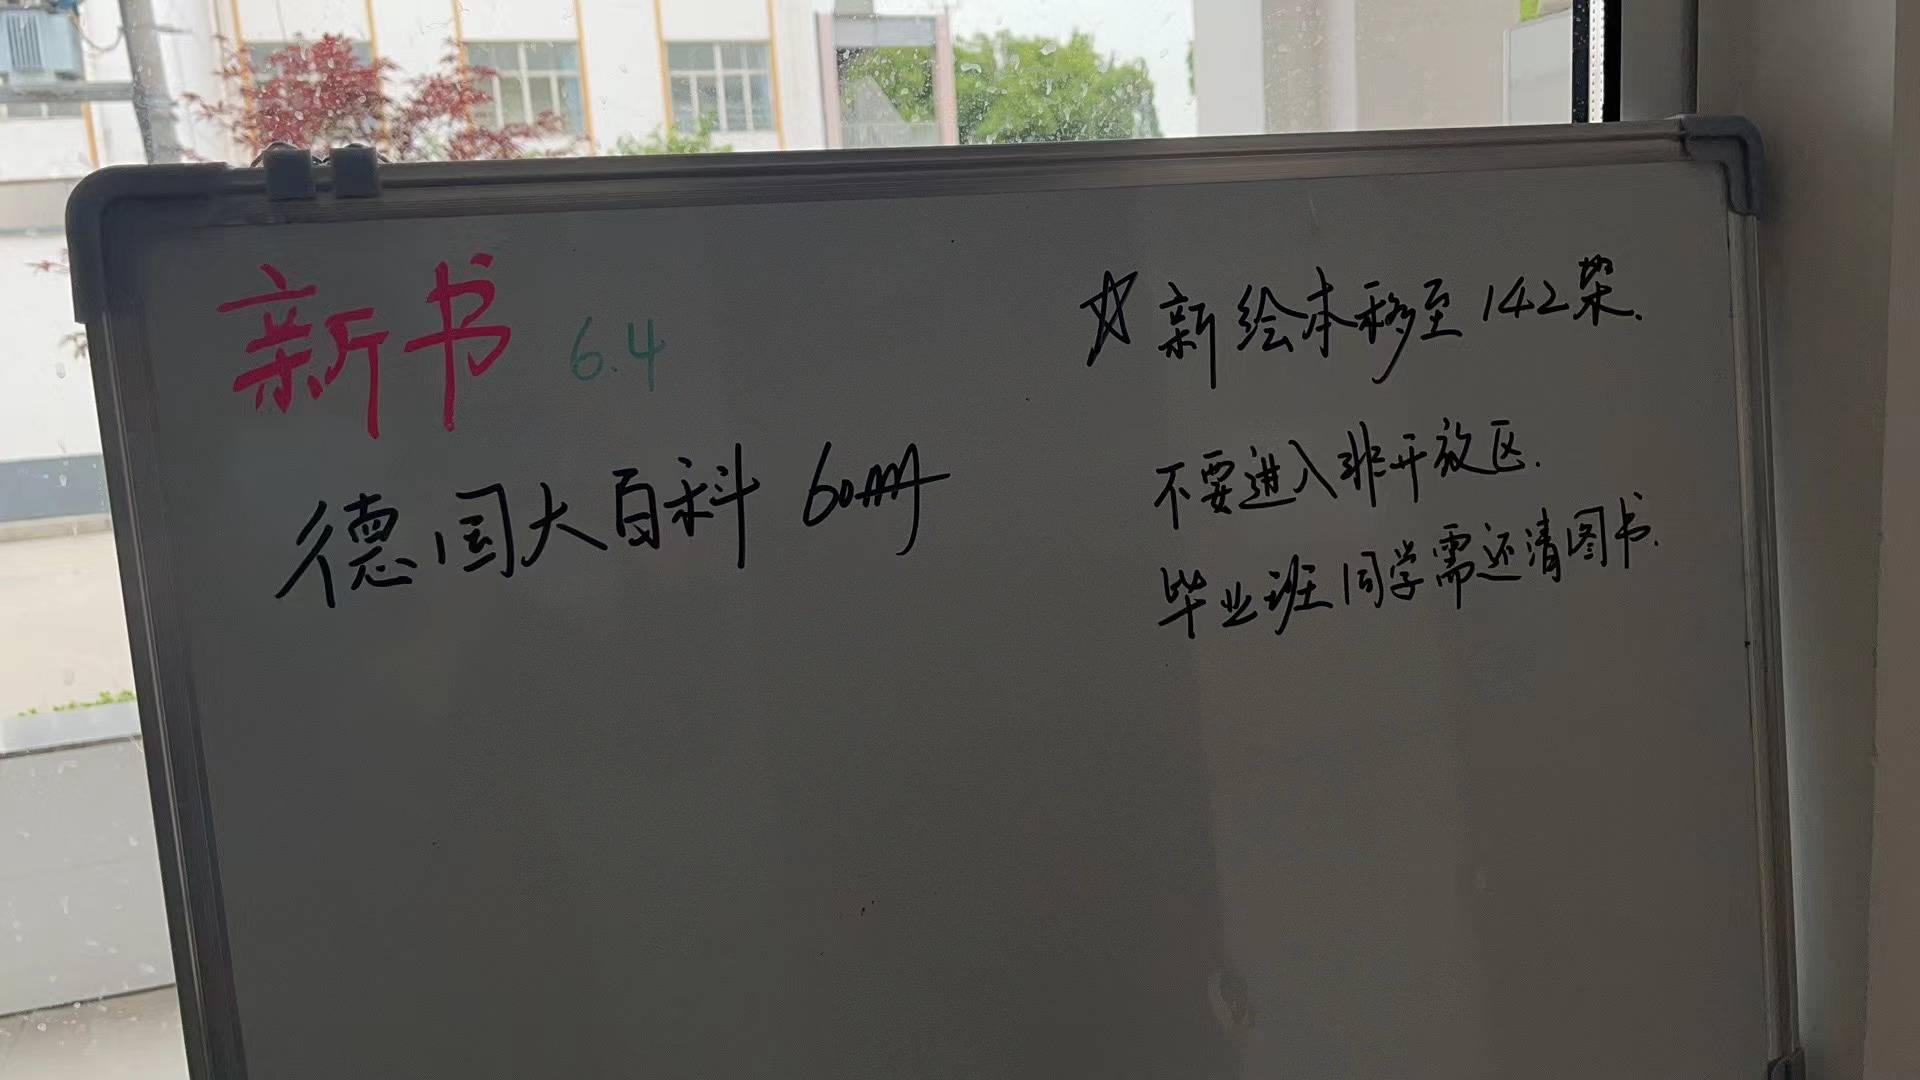 新书 6.4
德国大百科 60册
☆新绘本移至142架.
不要进入非开放区.
毕业班同学需还清图书.